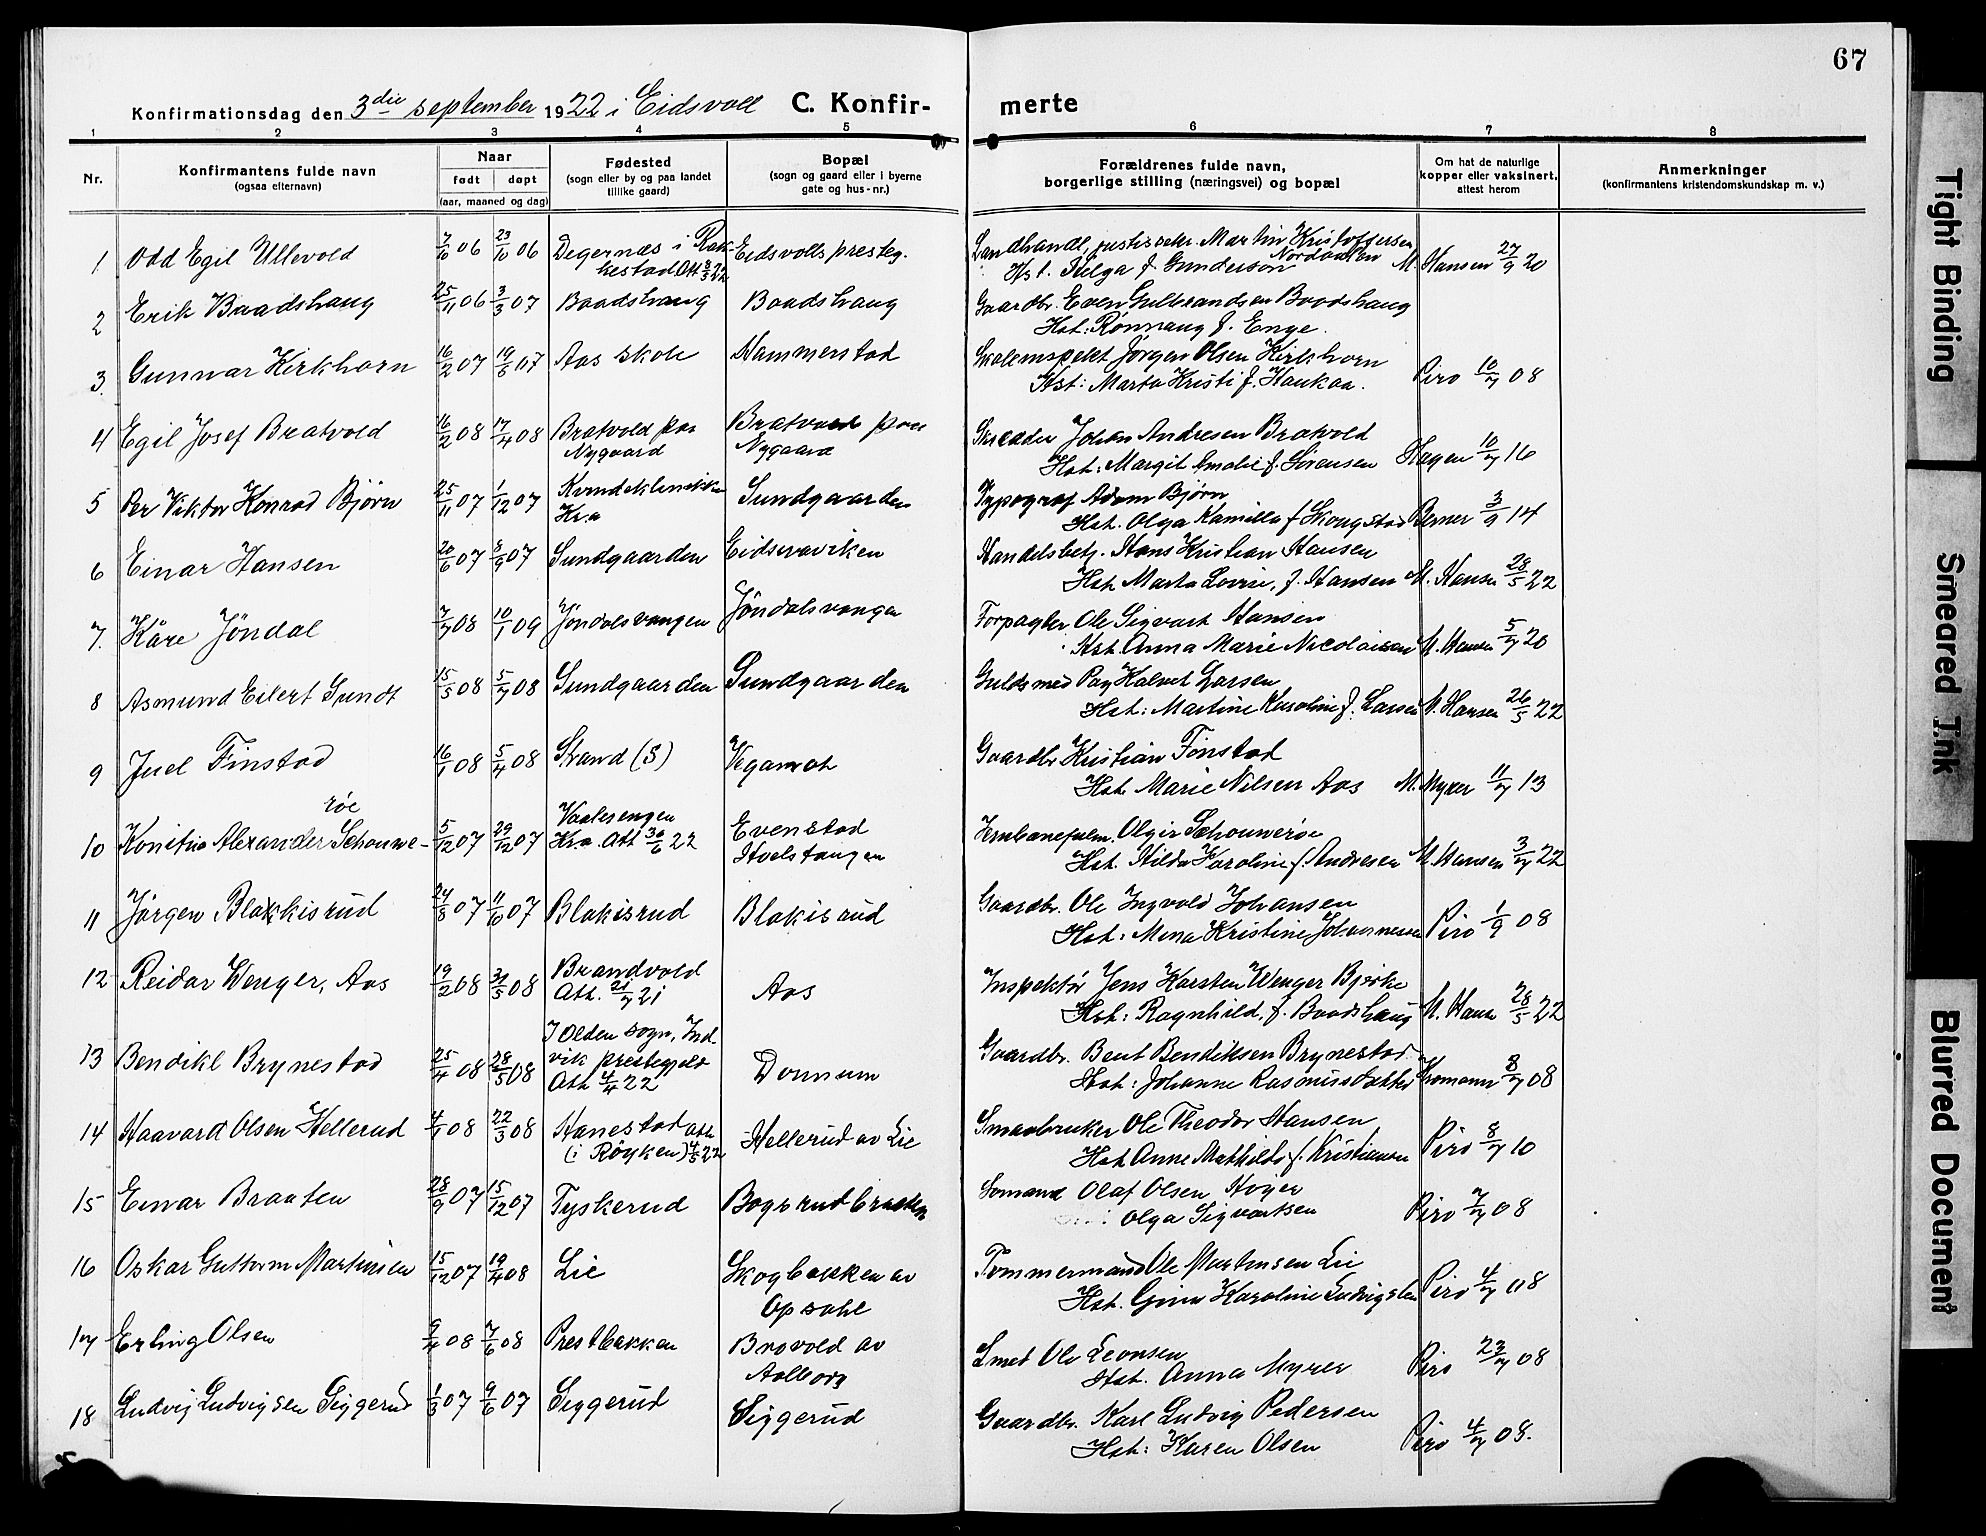 67
Konfirmationsdag den 3die september 1922 i Eidsvoll C. Konfir- merte
1 2 3 4 5 6 7 8
Nr. Konfirmantens fulde navn (ogsaa efternavn) Naar født døpt (aar, maaned og dag) Fødested (sogn eller by og paa landet tillike gaard) Bopæl (sogn og gaard eller i byerne gate og hus-nr.) Forældrenes fulde navn, borgerlige stilling (næringsvei) og bopæl Om hat de naturlige kopper eller vaksinert, attest herom Anmerkninger (konfirmantens kristendomskundskap m. v.)
1 Odd Egil Ullevold 7/10 06 23/10 06 Degernæs i Rak- Eidsvolls presteg. Landhandl, Martin Kristoffersen Nordanken
kestad Att 22 Hst. Helga f. Gunderson M. Hansen 27/9 20
2 Erik Baadshaug 25/11 06 3/3 07 Baadshaug Baadshaug Gaardbr. Even Gulbrandsen Baadshaug
Hst: Rønnaug f. Enge.
3. Gunnar Kirkhorn 16/2 07 19/5 07 Aas skole Hammerstad Skoleinspekt Jørgen Olsen Kirkhorn
Hst: Marta Kristi f. Haukaa. Piro 10/7 08
4 Egil Josef Bratvold 16/2 08 17/4 08 Bratvold paa Nygaard Bratvold paa Nygaard Johan Andresen Bratvold
Hst: Margit Amalie f. Sørensen Hagen 10/7 16
5 Per Viktor Konrad Bjørn 25/11 07 1/12 07 Kvindeklinikken Kr.a Sundgaarden Typograf Adam Bjørn
Hst. Olga Kamilla f Skougstad Berner 3/9 14
6 Einar Hansen 20/6 07 8/9 07 Sundgaarden Eidsvaviken Handelsbetj. Hans Kristian Hansen
Hst Marta Lovise, f. Hansen M. Hansen 28/5 22
7. Kåre Jøndal 7/7 08 10/1 09 Jøndalsvangen Jøndalsvangen Forpagter Ole Sigvart Hansen
Hst. Anna Marie Nicolaisen M. Hansen 5/7 20
8 Asmund Eilert Sundt 15/5 08 5/7 08 Sundgaarden Sundgaarden Guldsmed Kalvet Larsen
Hst: Martine Karoline f. Larsen M. Hansen 26/5 22
9 Juel Finstad 16/1 08 5/4 08 Strand (S) Gaardbr Kristian Finstad
Hst. Marie Nilsen Aas M. Myrer 11/7 13
røe
10 Alexander Schouwe- 5/12 07 29/12 07 Vaalerengen Kr.a. Att 30/6 22 Evenstad Schouwerøe
Hst. Hilda Karoline f. Andresen M. Hansen 3/7 22
11 Jørgen Blakkisrud 24/8 07 11/6 07 Blakisrud Blakisrud Gaardbr. Ole Ingvald Johansen
Hst: Mina Kristine Johannesen Piro 1/9 08
12 Reidar Wenger, Aas 19/2 08 31/5 08 Brandvold Att. 21/7 21 Aas Inspektør Jens Karsten Wenger Bjerke
Hst: Ragnhild, f. Baadshaug M. Hansen 28/5 22
13 Bendikt Brynestad 25/4 08 28/5 08 I Olden sogn, Ind- vik prestegjeld Att 4/4 22 Donnum Gaardbr. Bent Bendiksen Brynestad.
Hst: Johanne Rasmusdatter Kromann 8/7 08
14 Haavard Olsen Hellerud 4/1 08 22/3 08 Hanestad att (i Røyken) 4/5 22 Hellerud av Lie Smaabruker Ole Theodor Hansen
Hst Anne Mathilde f. Kristiansen Piro 8/7 10
15 Einar Braaten 28/9 07 15/12 07 Tyskerud Bogsrudbraaten Sømand Olaf Olsen Høyer
Olga Sigvartsen Piro 7/7 08
16 Oskar Guttorm Martinsen 15/12 07 19/4 08 Lie Skogbakken av Opsahl Tømmermand Ole Martinsen Lie
Hst. Gina Karoline Ludvigsen Piro 4/7 08
17 Erling Olsen 9/4 08 7/6 08 Prestbakken Brovold av Aalborg Smed Ole Leonsen
Hst. Anna Myrer Piro 23/7 08
18 Ludvig Ludvigsen Siggerud 1/3 07 9/6 07 Siggerud Siggerud Gaardbr. Karl Ludvig Pedersen
Hst: Karen Olsen Piro 4/7 08.
Tight Binding
Smeared Ink
Blurred Document